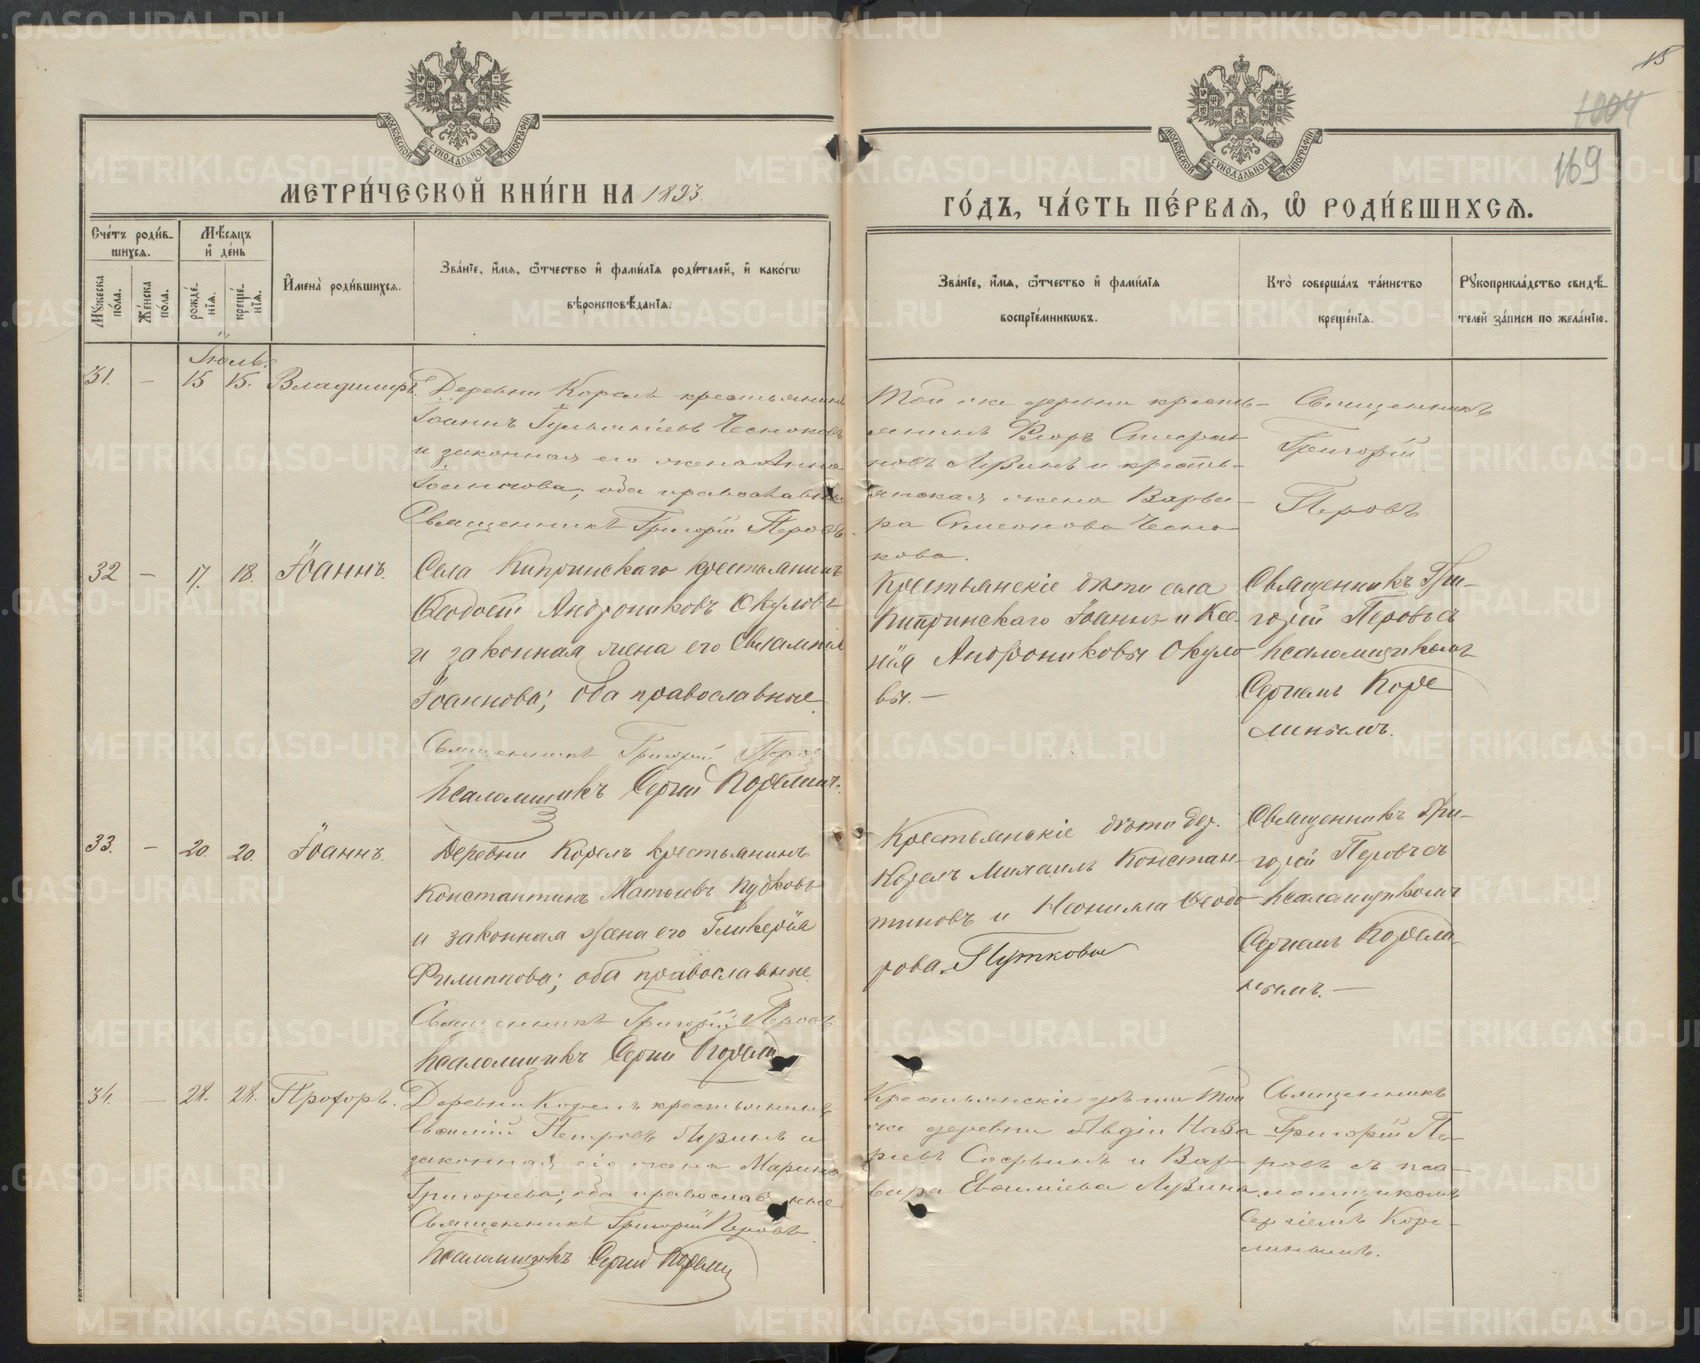 15
1004
169
МОСКОВСКОЙ СѴНОДАЛЬНОЙ ТИПОГРАФІИ
МОСКОВСКОЙ СѴНОДАЛЬНОЙ ТИПОГРАФІИ
МЕТРИ́ЧЕСКОЙ КНИ́ГИ НА 1893.
ГО́ДЪ, ЧА́СТЬ ПЕ́РВАЯ, Ѡ҆ РОДИ́ВШИХСЯ.
Сче́тъ роди́в-
шихся.
Мꙋжеска по́ла.
Же́нска по́ла.
Мѣ́сяцъ
и҆ де́нь
рожде́-
нїѧ.
креще́-
нїѧ.
И҆мена̀ роди́вшихся.
Зва́нїе, и҆́мѧ, ѻ҆́тчество и҆ фами́лїѧ роди́телей, и҆ како́гѡ
вѣроисповѣ́данїѧ.
Зва́нїе, и҆́мѧ, ѻ҆́тчество и҆ фами́лїѧ
воспрїе́мникѡвъ.
Кто̀ соверша́лъ та́инство
креще́нїѧ.
Рꙋкоприкла́дство свидѣ́-
телей за́писи по жела́нїю.
Іюль.
31. — 15 15. Владиміръ.
Деревни Корелъ крестьянинъ
Іоаннъ
и законная его жена Анна
оба православные
Священникъ Григорій Перовъ.
Той же деревни кресть-
янинъ
и кресть-
янская жена Варва-
ра Симеонова Чесно-
кова.
Священникъ
Григорій
Перовъ
32 — 17. 18. Іоаннъ.
Села Кипринскаго крестьянинъ
Ѳеодосій Андрониковъ Окуловъ
и законная жена его Евлампія
Іоаннова; оба православные.
Священникъ Григорій Перовъ
Псаломщикъ Сергій Корелинъ.
Крестьянскіе дѣти села
Кипринскаго Іоаннъ и Ксе-
нія Андрониковы Окуло
вы. —
Священникъ Гри-
горій Перовъ съ
псаломщикомъ
Сергіемъ Коре
линымъ.
33. — 20. 20. Іоаннъ.
Деревни Корелъ крестьянинъ
Константинъ Матѳіевъ Пудковъ
и законная жена его Гликерія
Филиппова; оба православные.
Священникъ Григорій Перовъ
Псаломщикъ Сергій Корели
Крестьянскіе дѣти дер.
Корелъ Михаилъ Констан-
тиновъ и Неонила Ѳеодо
рова. Путковы
Священникъ Гри-
горій Перовъ съ
псаломщикомъ
Сергіемъ Корели-
нымъ. —
34. — 28. 28. Прохоръ.
Деревни Корелъ крестьянинъ
Евѳимій Петровъ Лузинъ и
законная его жена Марина
Григорьева; оба православные
Священникъ Григорій Перовъ.
Псаломщикъ Сергій Корелин
Крестьянскіе дѣти той
же деревни Авдій
и Вар-
вара Евѳиміева Лузина.
Священникъ
Григорій Пе-
ровъ съ пса-
ломщикомъ
Сергіемъ Коре-
линымъ.
METRIKI.GASO-URAL.RU